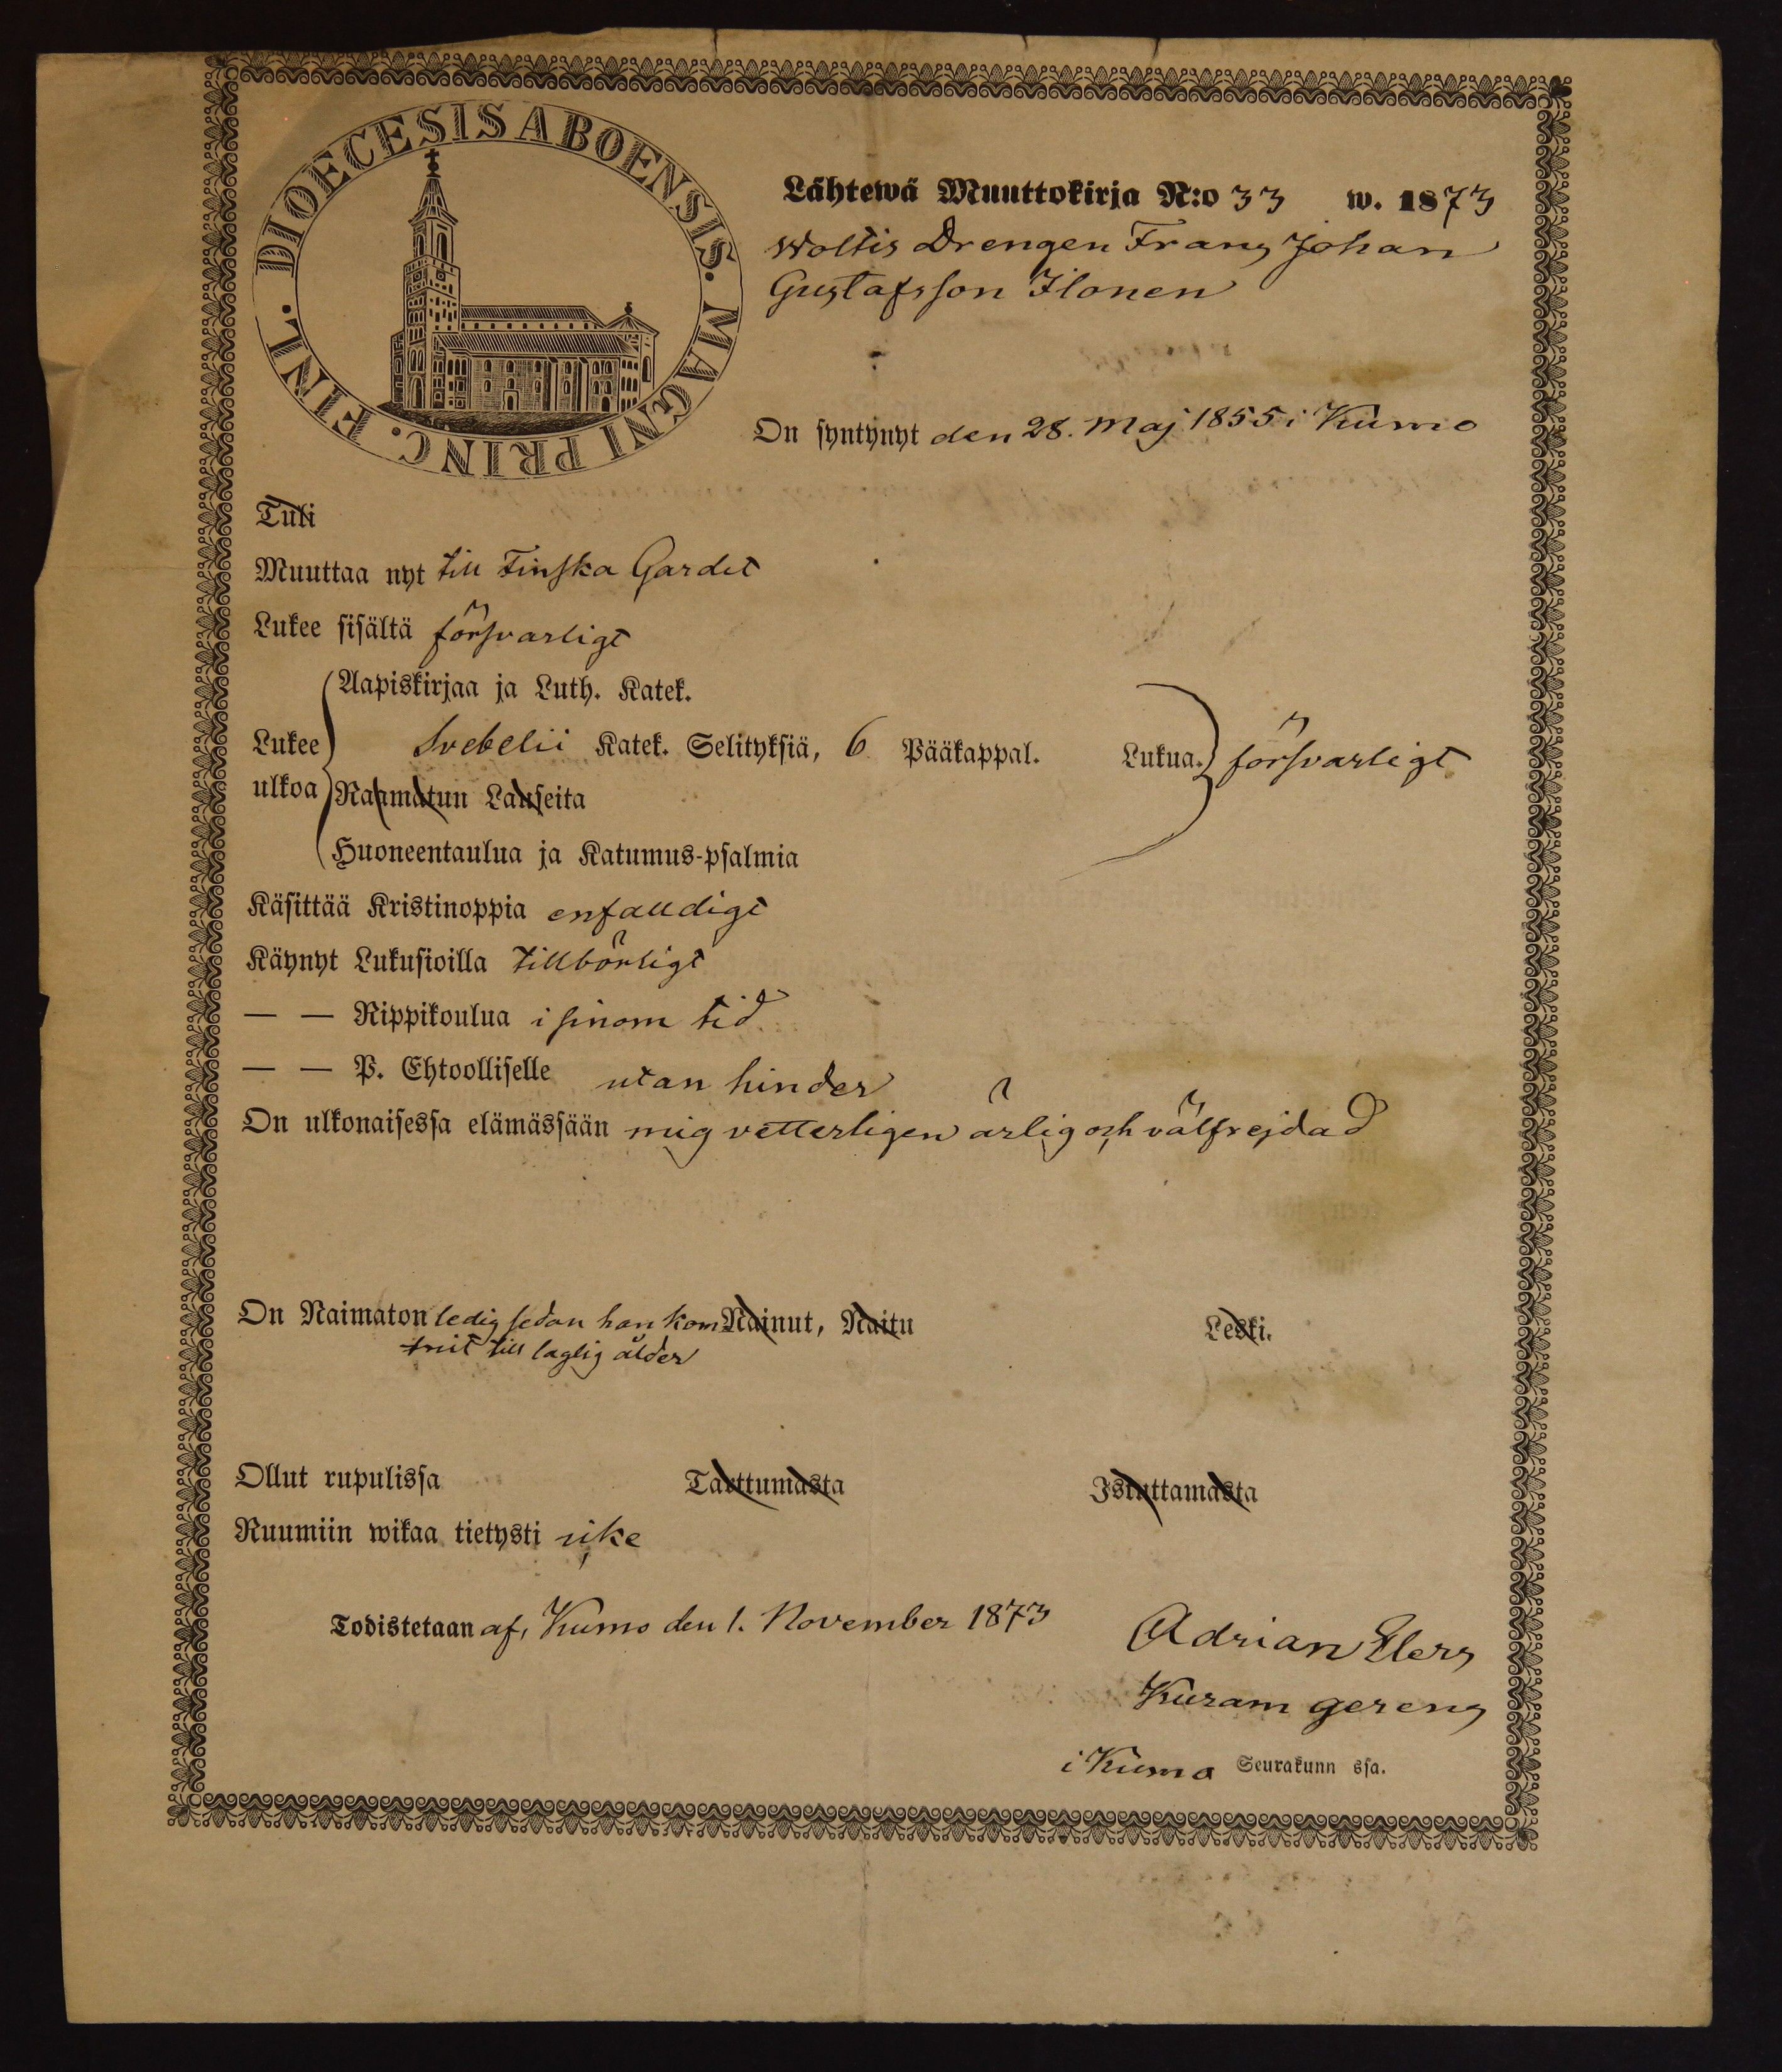 DIOECESIS ABOENSIS. MAGNI PRINC. FINL.
Lähtewä Muuttokirja N:o 33 w. 1873
Woltis Drengen Frans Johan
Gustafsson Ilonen
On syntynyt den 28. Maj 1855 i Kumo
Tuli
Muuttaa nyt till Finska Gardet
Lukee sisältä försvarligt
Aapiskirjaa ja Luth. Katek.
Lukee ulkoa Svebelii Katek. Selityksiä, 6 Pääkappal. Lukua. försvarligt
Raamatun Lauseita
Huoneentaulua ja Katumus-psalmia
Käsittää Kristinoppia enfaldigt
Käynyt Lukusioilla tillbörligt
— — Rippikoulua i sinom tid
— — P. Ehtoolliselle utan hinder
On ulkonaisessa elämässään mig vetterligen ärlig och välfrejdad
On Naimaton ledig sedan han kom Nainut, Naitu Leski.
mit till laglig ålder
Ollut rupulissa Tarttumasta Istuttamasta
Ruumiin wikaa tietysti icke
Todistetaan af, Kumo den 1. November 1873
Adrian Elers
i Kumo Seurakunn ssa.